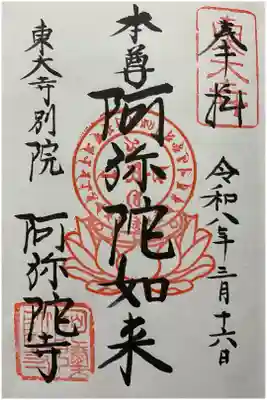 奉拝
令和八年三月十六日
本尊
阿弥陀如来
東大寺別院
阿弥陀寺